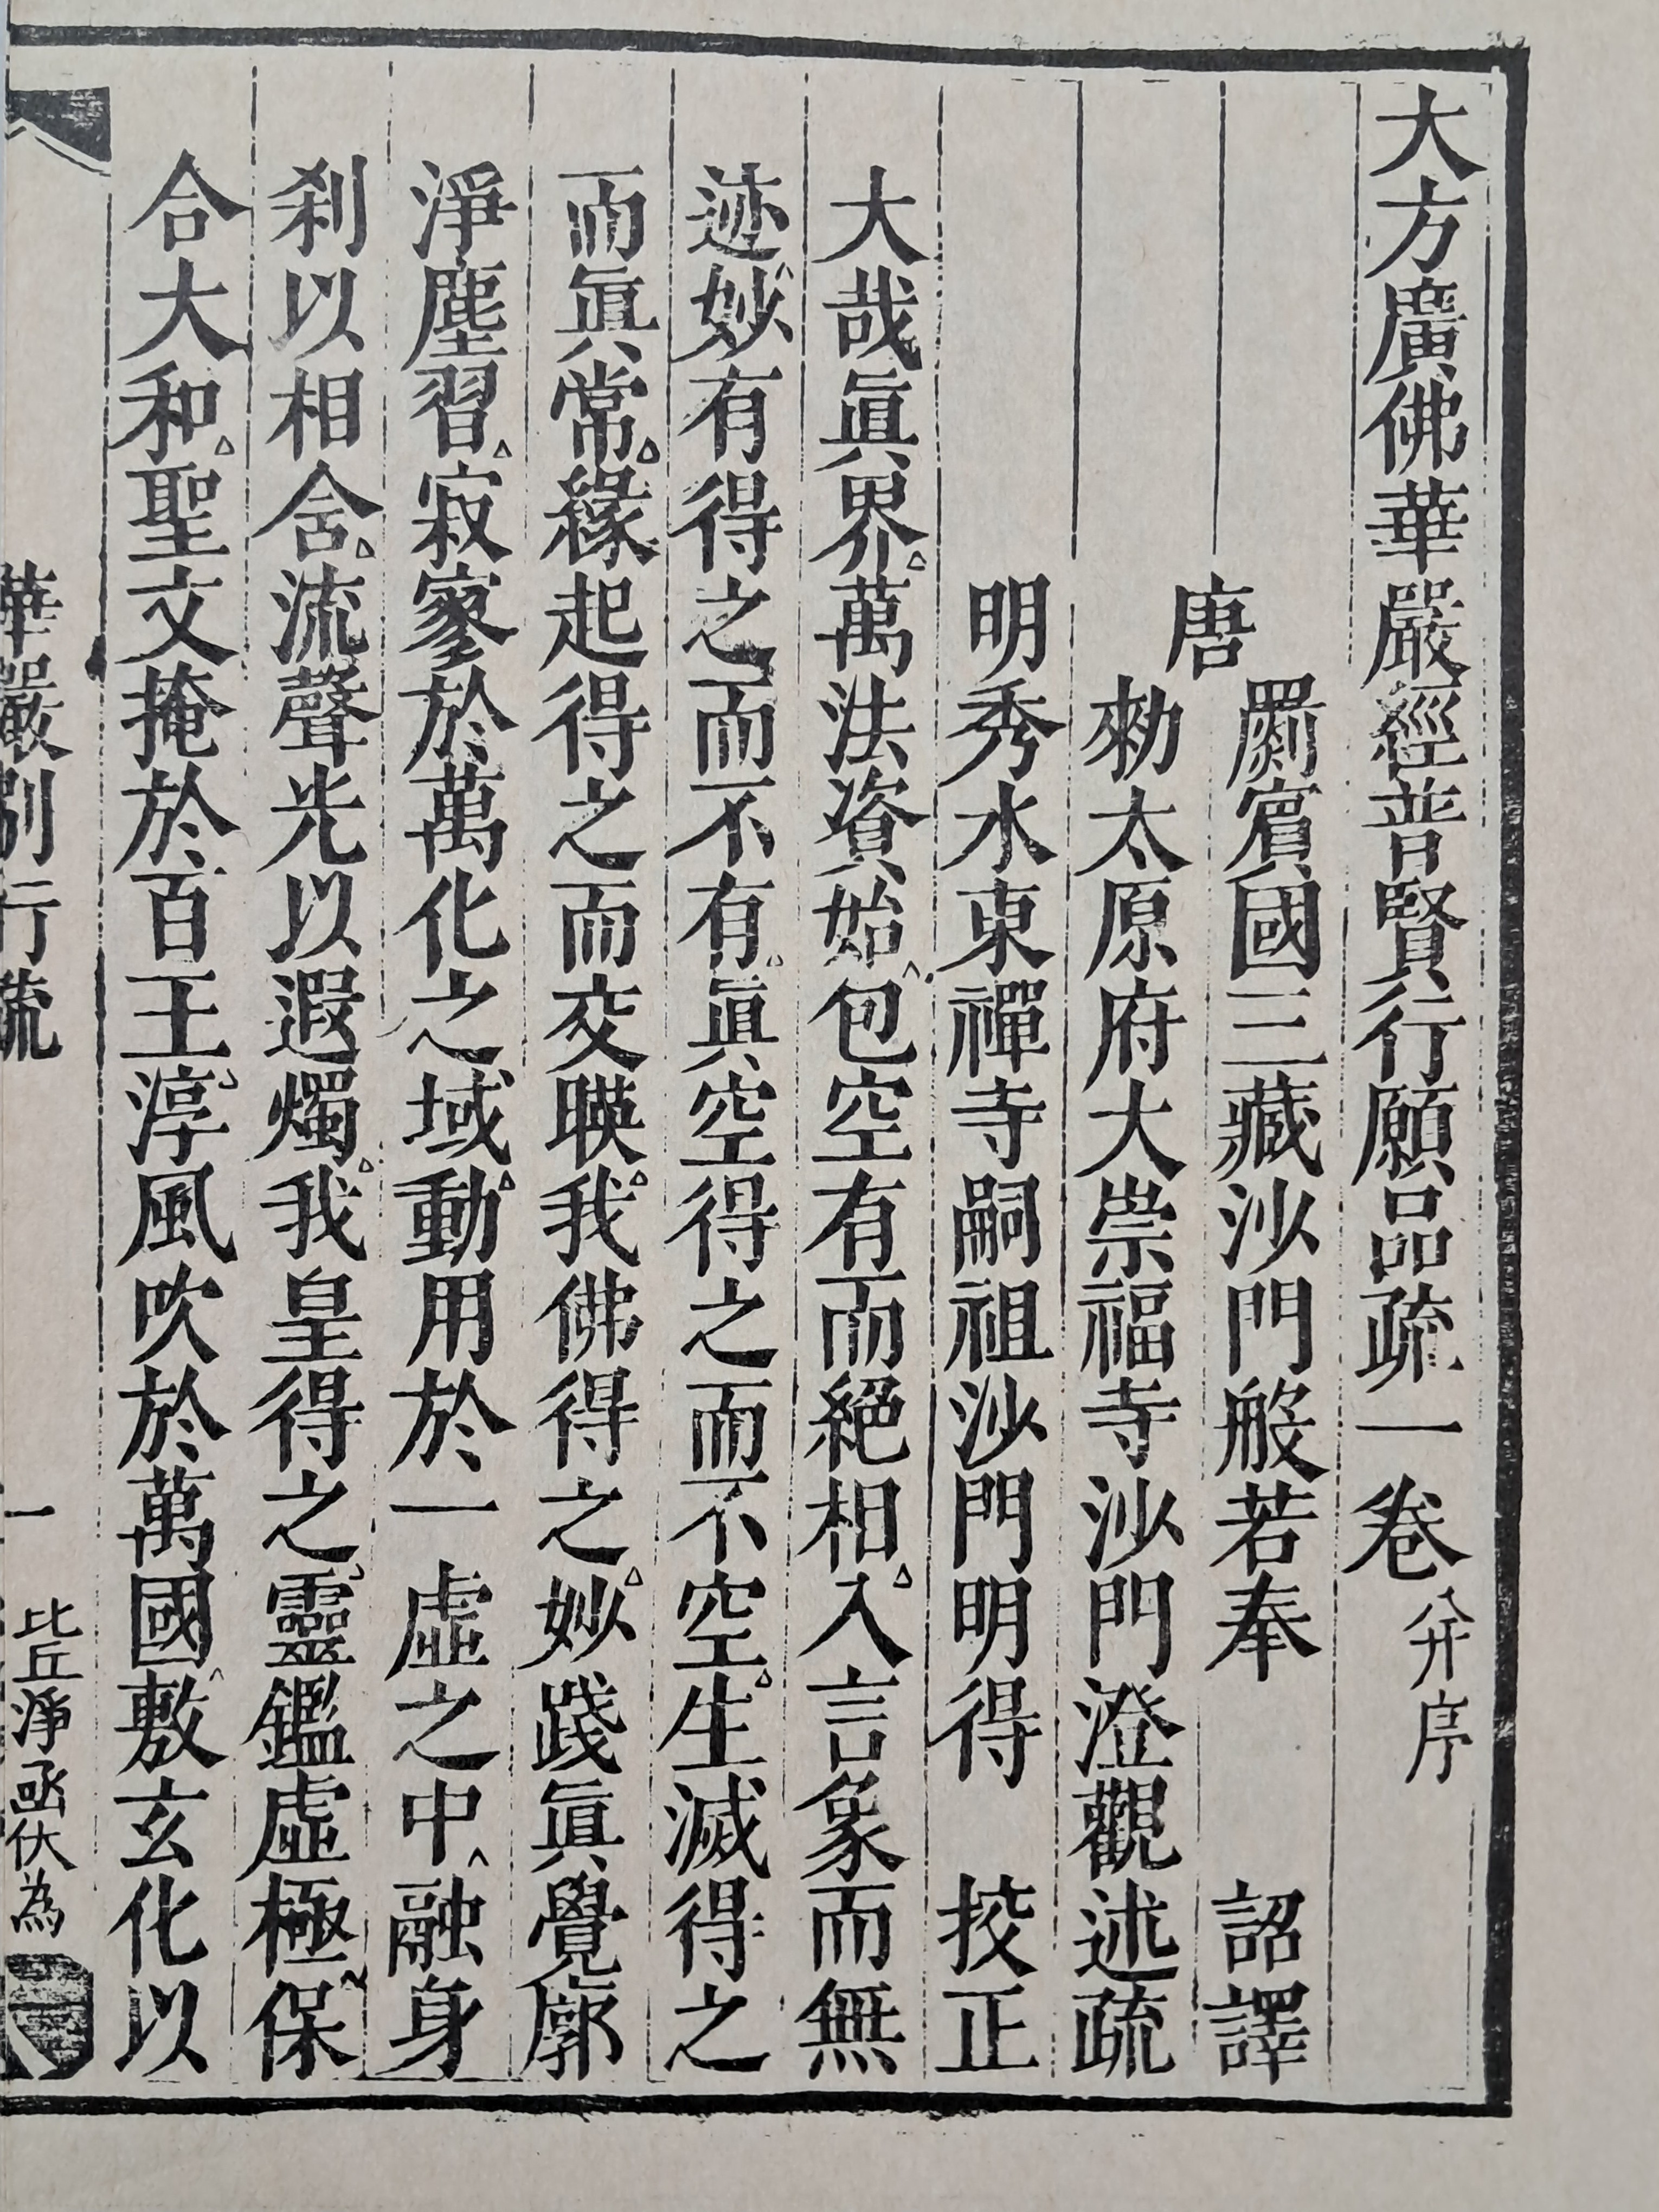 大方廣佛華嚴經普賢行願品疏一卷并序
唐
罽賓國三藏沙門般若奉 詔譯
勑太原府大崇福寺沙門澄觀述疏
明秀水東禪寺嗣祖沙門明得 挍正
大哉眞界萬法資始包空有而絕相入言象而無
迹妙有得之而不有眞空得之而不空生滅得之
而眞常緣起得之而交暎我佛得之妙踐眞覺廓
淨塵習寂寥於萬化之域動用於一虛之中融身
刹以相含流聲光以遐燭我皇得之靈鑑虛極保
合大和聖文掩於百王淳風吹於萬國敷玄化以
華嚴別行疏 一 比丘淨函伏為